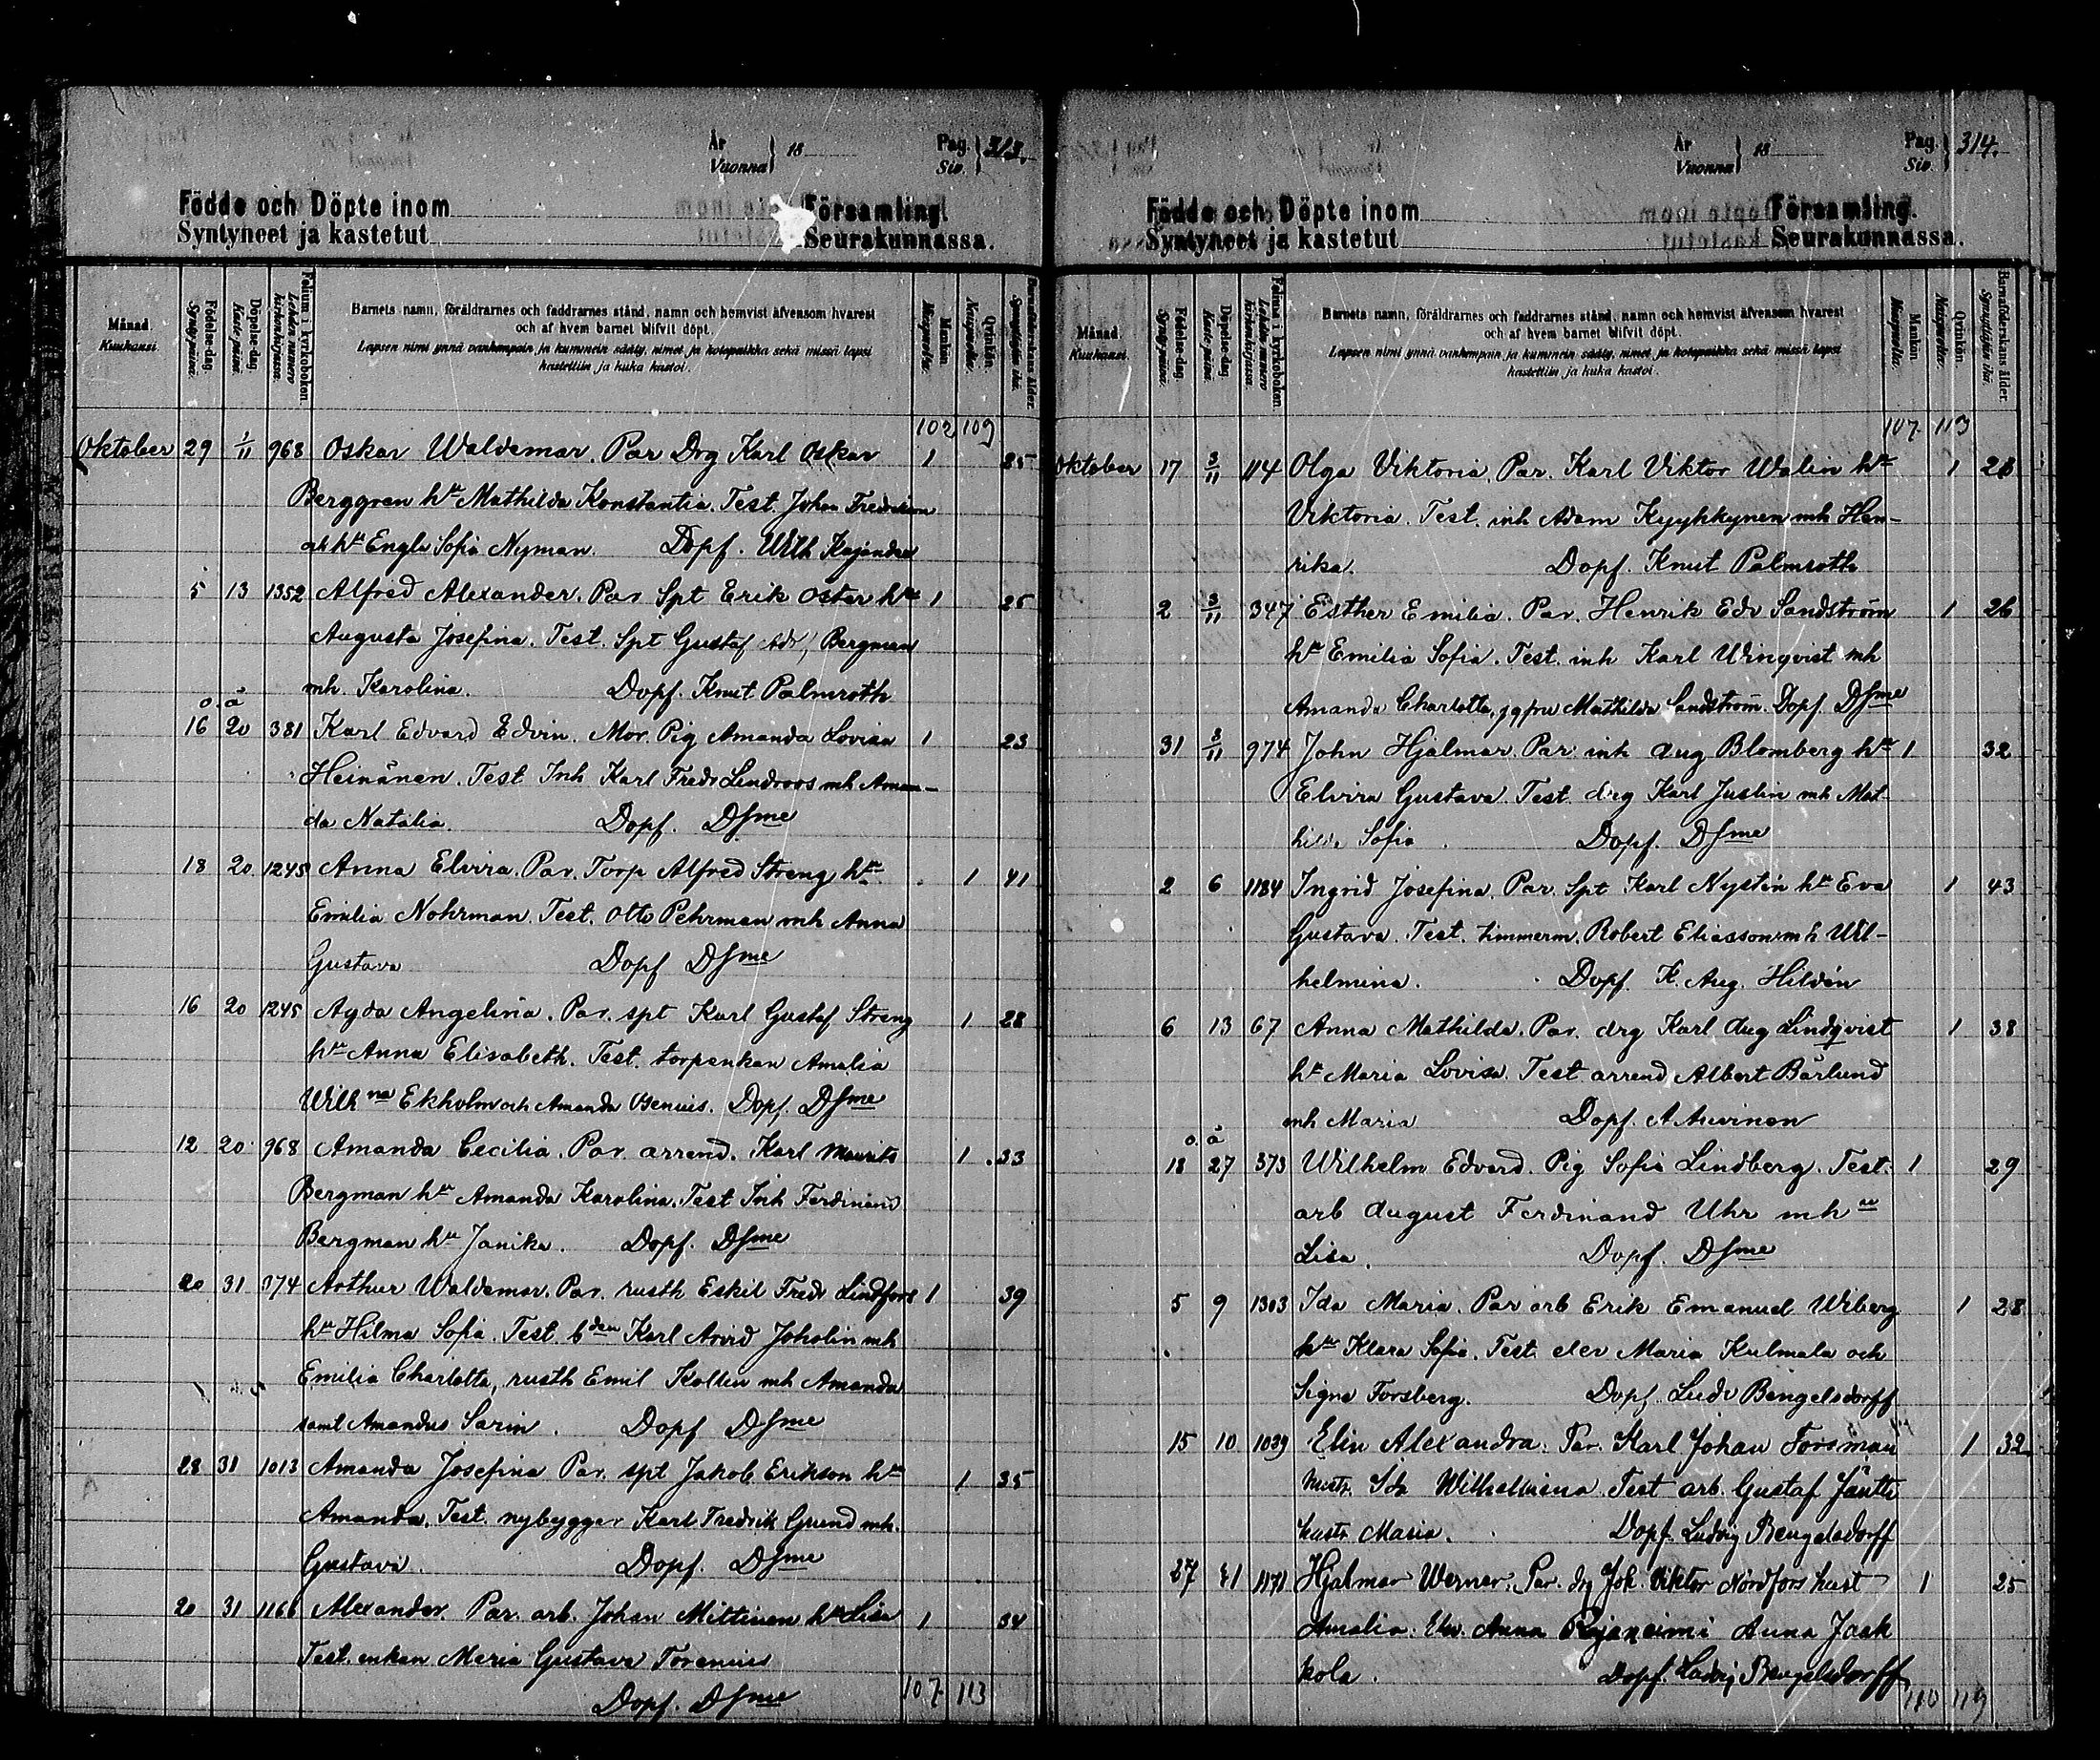 År
Vuonna } 18
Pag.
Siv. } 313.
Födde och Döpte inom Församling.
Syntyneet ja kastetut Seurakunnassa.
Månad.
Kuukausi.
Födelse-dag.
Syntymä-päivä.
Döpelse-dag.
Kaste-päivä.
Folium i kyrkoboken.
Lehden numero kirkonkirjassa.
Barnets namn, föräldrarnes och faddrarnes stånd, namn och hemvist äfvensom hvarest
och af hvem barnet blifvit döpt.
Lapsen nimi ynnä vanhempain ja kummein sääty, nimet ja kotopaikka sekä missä lapsi
kastettiin ja kuka kastoi.
Mankön.
Miespuolta.
Qvinkön.
Naispuolta.
Barnaföderskans ålder.
Synnyttäjän ikä.
102 109
Oktober 29 1/11 968 Oskar Waldemar. Par Drg Karl Oskar 1 25
Berggren hu Mathilda Konstantia. Test. Johan Fredrikson
och hu Engla Sofia Nyman. Dopf. Wilh Kajander
5 13 1352 Alfred Alexander. Par Spt Erik Öster hu 1 25
Augusta Josefina. Test. Spt Gustaf Adr, Bergman
mh. Karolina. Dopf. Knut Palmroth
o. ä
16 20 381 Karl Edvard Edvin. Mor. Pig Amanda Lovisa 1 23
Heinänen. Test Inh Karl Fredr Lindroos mh Aman-
da Natalia. Dopf. Dsme
18 20 1245 Anna Elvira. Par. Torp Alfred Streng hu 1 41
Emilia Nohrman. Test. Otto Pehrman mh Anna
Gustava Dopf Dsme
16 20 1245 Ayda Angelina. Par. spt Karl Gustaf Streng 1 28
hu Anna Elisabeth. Test. torpenkan Amalia
Wilhna Ekholm och Amanda Dopf. Dsme
12 20 968 Amanda Cecilia. Par. arrend. Karl Maurits 1 33
Bergman hu Amanda Karolina. Test Inh Ferdinand
Bergman hu Janika. Dopf. Dsme
20 31 374 Arthur Waldemar. Par. rusth Eskil Fredr Lindfors 1 39
hu Hilma Sofia. Test. bden Karl Arvid Joholin mh
Emilia Charlotta, rusth Emil Kollin mh Amanda
samt Amandus Sarin. Dopf Dsme
28 31 1013 Amanda Josefina Par. spt Jakob Erikson hu 1 35
Amanda. Test. nybygger Karl Fredrik Grund mh.
Gustava. Dopf. Dsme
20 31 1166 Alexander Par. arb. Johan Mittinen hu Lisa 1 34
Test. enkan Maria Gustava Torenius
Dopf. Dsme 107 113
År
Vuonna } 18
Pag.
Siv. } 314.
Födde och Döpte inom Församling.
Syntyneet ja kastetut Seurakunnassa.
Månad.
Kuukausi.
Födelse-dag.
Syntymä-päivä.
Döpelse-dag.
Kaste-päivä.
Folium i kyrkoboken.
Lehden numero kirkonkirjassa.
Barnets namn, föräldrarnes och faddrarnes stånd, namn och hemvist äfvensom hvarest
och af hvem barnet blifvit döpt.
Lapsen nimi ynnä vanhempain ja kummein sääty, nimet ja kotopaikka sekä missä lapsi
kastettiin ja kuka kastoi.
Mankön.
Miespuolta.
Qvinkön.
Naispuolta.
Barnaföderskans ålder.
Synnyttäjän ikä.
107 113
Oktober 17 3/11 114 Olga Viktoria. Par. Karl Viktor Walin hu 1 28
Viktoria. Test. inh Adam Kyyhkynen mh Hen-
rika. Dopf. Knut Palmroth
2 3/11 347 Esther Emilia. Par. Henrik Edv Sandström 1 26
hu Emilia Sofia. Test. inh Karl Winqvist mh
Amanda Charlotta, jgfru Mathilda Sandström. Dopf. Dsme
31 3/11 974 John Hjalmar. Par. inh Aug Blomberg hu 1 32
Elvira Gustava. Test. drg Karl Juslin mh Mat
hilda Sofia. Dopf. Dsme
2 6 1184 Ingrid Josefina. Par. Spt Karl Nystén hu Eva 1 43
Gustava. Test. timmerm. Robert Eliasson mh Wil-
helmina. Dopf. K. Aug. Hildén
6 13 67 Anna Mathilda. Par. drg Karl Aug Lindqvist 1 38
hu Maria Lovisa. Test arrend Albert Bärlund
mh Maria Dopf. A Auvinen
o. ä
18 27 373 Wilhelm Edvard. Pig Sofia Lindberg. Test. 1 29
arb August Ferdinand Uhr mh
Lisa. Dopf. Dsme
5 9 1303 Ida Maria. Par arb Erik Emanuel Wiberg 1 28
hu Klara Sofia. Test. elev Maria Kulmala och
Signe Forsberg. Dopf. Ludv Bengelsdorff
15 10 1039 Elin Alexandra. Par. Karl Johan Forsman 1 32
hustr. Ida Wilhelmina Test arb. Gustaf Jäntti
hustr Maria. Dopf. Ludvig Bengelsdorff
27 31 1171 Hjalmar Werner. Par. drg Joh. Viktor Nordfors hust 1 25
Amalia. Anna Rajaniemi Anna Jaak
kola. Dopf. Ludvig Bengelsdorff
110 119